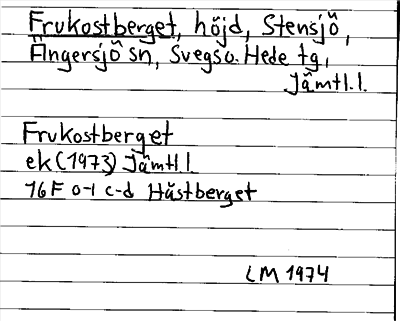 Frukostberget, höjd, Stensjö,
Ängersjö sn, Svegs o. Hede tg,
Jämtl.l.
Frukostberget
ek (1973) Jämtl.l.
16F 0-1 c-d Hästberget
LM 1974